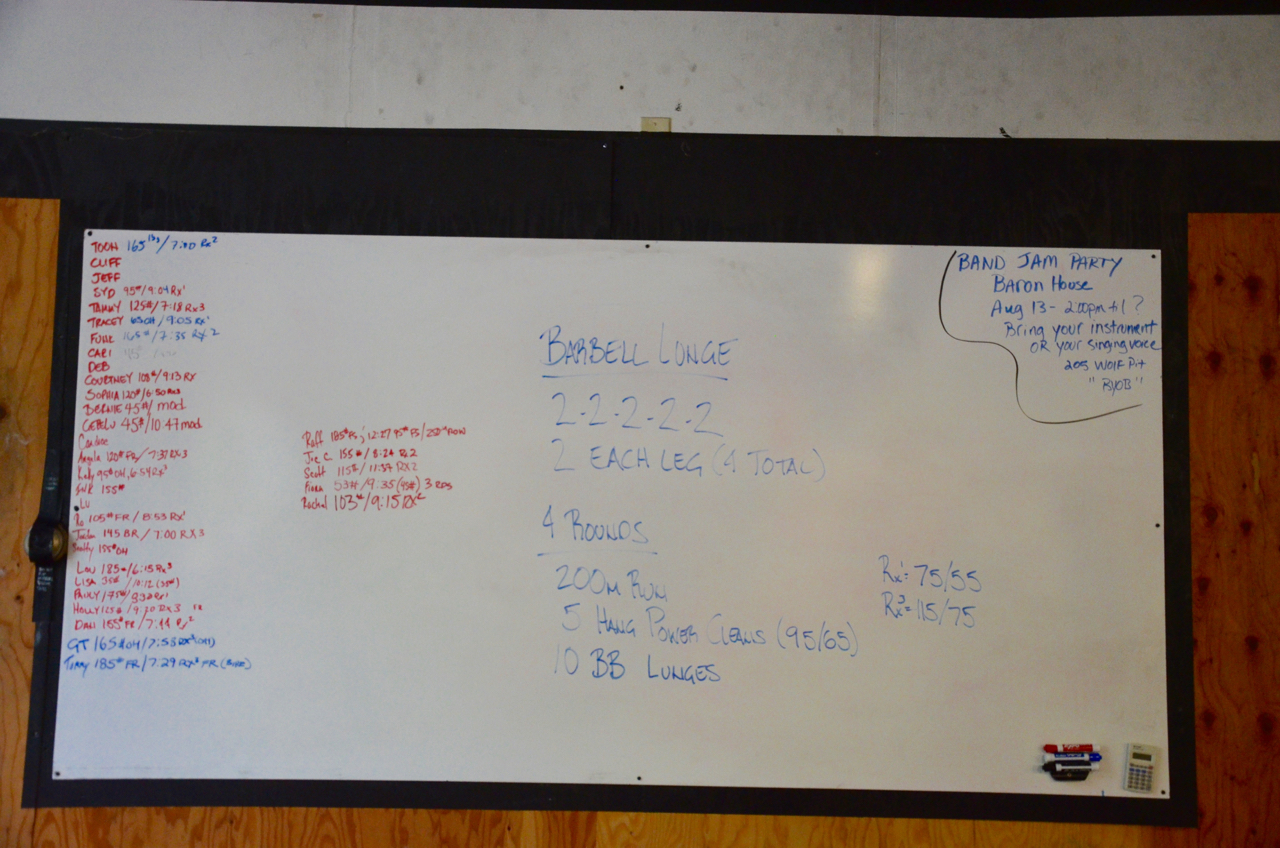 TOOH 165 / 7:00 Rx2
CLIFF
JEFF
SYD 95# / 9:04 Rx1
TAMMY 125# / 7:18 Rx3
TRACEY 65OH / 9:05 Rx1
165# / 7:35 RX 2
CARI
DEB
COURTNEY 103# / 9:13 RX
SOPHIA 120# / 6:50 Rx3
BERNIE 45# / mod
45# / 10:47 mod
Caroline
Angela 120# FR / 7:37 RX3
Kelly 95# OH, 6:54 RX1
155#
LU
Ro 105# FR / 8:53 Rx1
145 BR / 7:00 RX3
155# OH
LOU 185# / 6:15 Rx3
LISA 35# / 10:12 (35#)
HOLLY 125# / 9:20 RX3
DAN 155# FR / 7:44 Rx2
GT 165# OH / 7:53 RX3 (OH)
Tommy 185# FR / 7:29 RX3 FR
Raff 185# FS; 12:27 95# FS / 250M ROW
Joe C. 155# / 8:24 Rx2
Scott 115# / 11:37 RX2
Fiona 53# / 9:35 (45#) 3 RDS
Rachel 103# / 9:15 RX2
BARBELL LUNGE
2-2-2-2-2
2 EACH LEG (4 TOTAL)
4 ROUNDS
200M RUN
5 HANG POWER CLEANS (95/65)
10 BB LUNGES
Rx1= 75/55
Rx3= 115/75
BAND JAM PARTY
Baron House
Aug 13 - 2:00pm til ?
Bring your instrument
OR your singing voice
205 Wolf Pit
"BYOB"